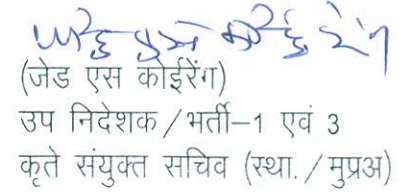 (जेड एस कोईरेंग)
उप निदेशक / भर्ती–1 एवं 3
कृते संयुक्त सचिव (स्था. / मुप्रअ)